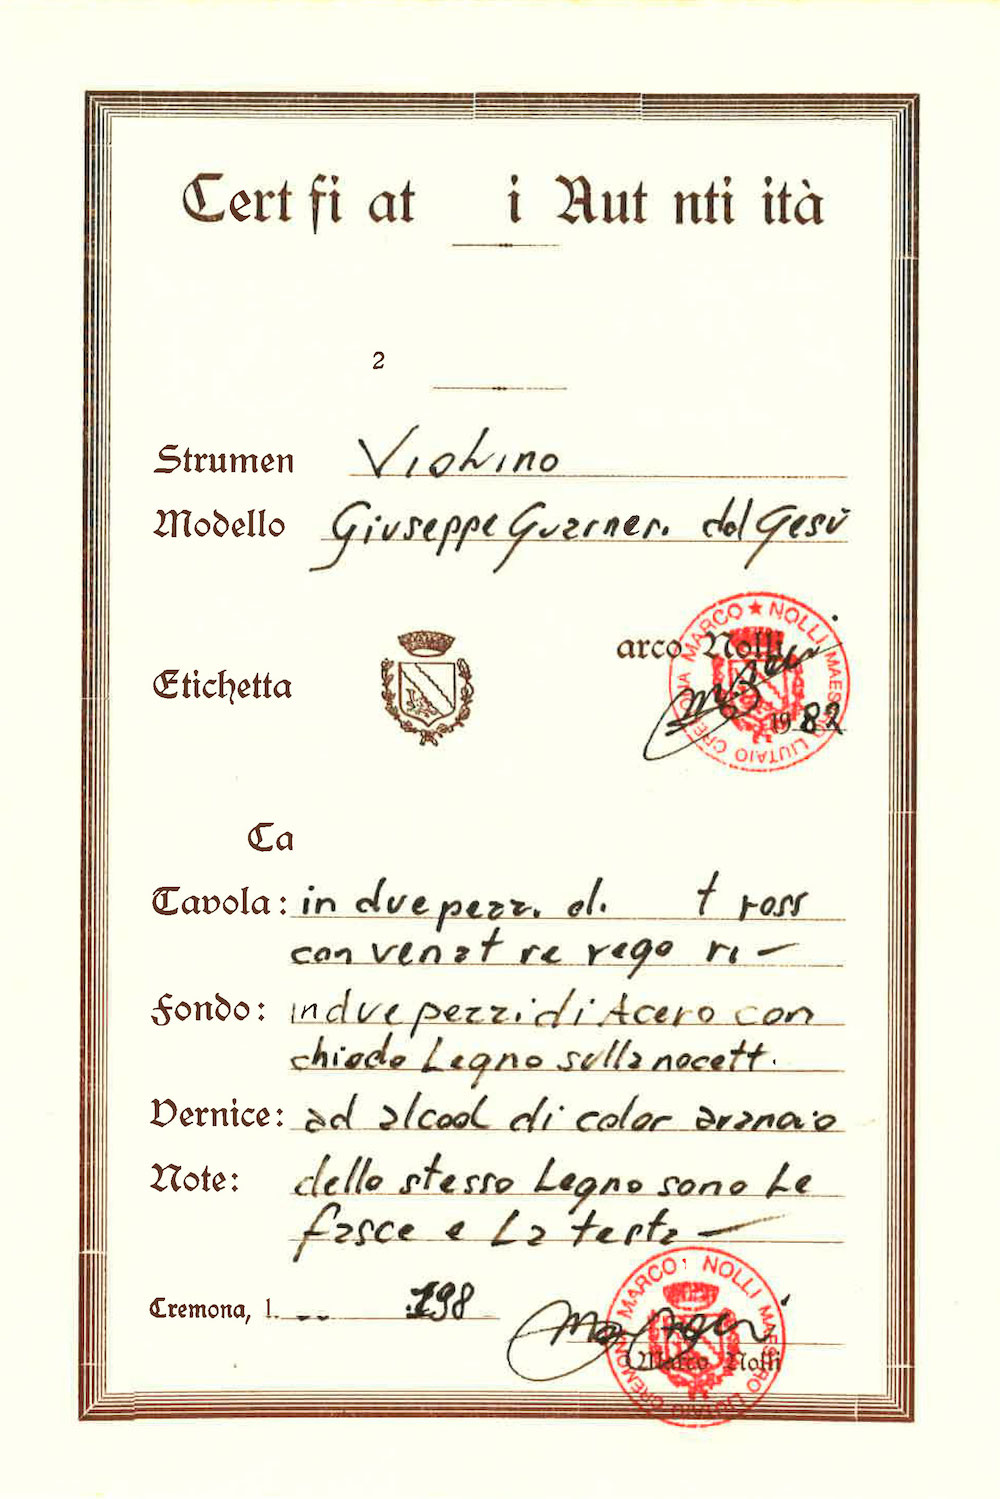 Cert fi at i Aut nti ità
2
Strumen Violino
Modello Giuseppe Guarneri del Gesù
MARCO ★ NOLLI MAESTRO LIUTAIO CREMONA
arco Nolli
Etichetta
1982
Ca
Tavola: in due pezzi di t ross
con venat re rego ri -
Fondo: in due pezzi di Acero con
chiodo Legno sulla nocett.
Vernice: ad alcool di color arancio
Note: dello stesso Legno sono Le
fasce e La testa -
Cremona, l. 198
MARCO NOLLI MAESTRO LIUTAIO CREMONA
Marco Nolli